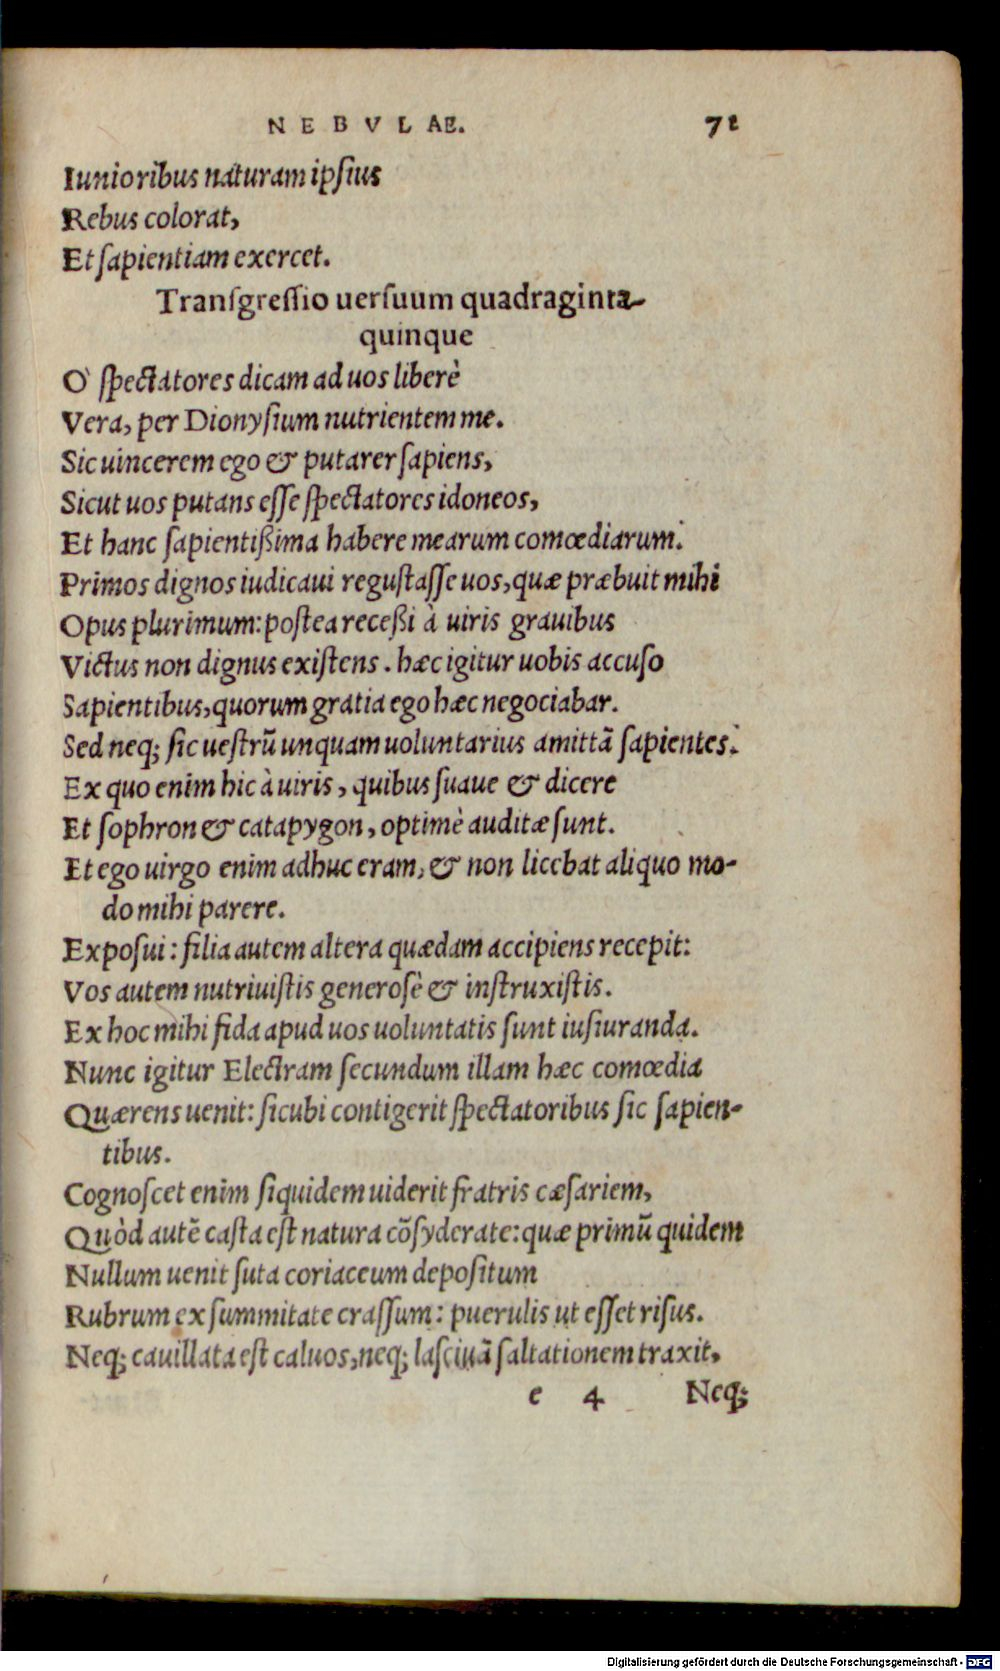 NEBVLAE. 71
Iunioribus naturam ipsius
Rebus colorat,
Et sapientiam exercet.
Transgressio uersuum quadraginta-
quinque
O` spectatores dicam ad uos liberè
Vera, per Dionysium nutrientem me.
Sic uincerem ego & putarer sapiens,
Sicut uos putans esse spectatores idoneos,
Et hanc sapientißima habere mearum comœdiarum.
Primos dignos iudicaui regustasse uos, quæ præbuit mihi
Opus plurimum: postea receßi à uiris grauibus
Victus non dignus existens. hæc igitur uobis accuso
Sapientibus, quorum gratia ego hæc negociabar.
Sed neq; sic uestrũ unquam uoluntarius amittã sapientes.
Ex quo enim hic à uiris, quibus suaue & dicere
Et sophron & catapygon, optimè auditæ sunt.
Et ego uirgo enim adhuc eram, & non licebat aliquo mo-
do mihi parere.
Exposui: filia autem altera quædam accipiens recepit:
Vos autem nutriuistis generosè & instruxistis.
Ex hoc mihi fida apud uos uoluntatis sunt iusiuranda.
Nunc igitur Electram secundum illam hæc comœdia
Quærens uenit: sicubi contigerit spectatoribus sic sapien-
tibus.
Cognoscet enim siquidem uiderit fratris cæsariem,
Quòd autẽ casta est natura cõsyderate: quæ primũ quidem
Nullum uenit suta coriaceum depositum
Rubrum ex summitate crassum: puerulis ut esset risus.
Neq; cauillata est caluos, neq; lasciuã saltationem traxit,
e 4 Neq;
Digitalisierung gefördert durch die Deutsche Forschungsgemeinschaft - DFG